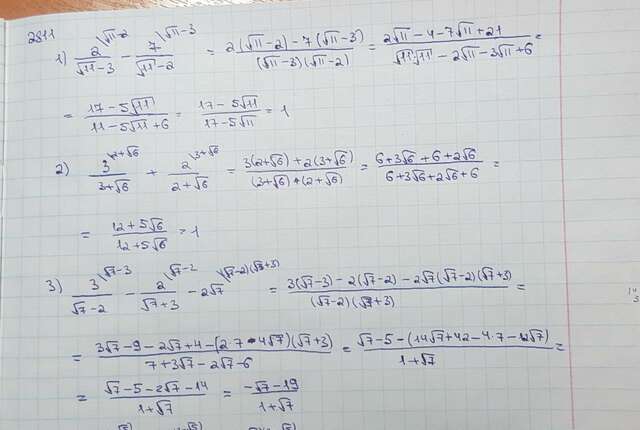 2811
1) 2/(√11-3) \√11-2 - 7/(√11-2) \√11-3 = (2(√11-2)-7(√11-3))/((√11-3)(√11-2)) = (2√11-4-7√11+21)/(√11√11-2√11-3√11+6) =
= (17-5√11)/(11-5√11+6) = (17-5√11)/(17-5√11) = 1
2) 3/(3+√6) \2+√6 + 2/(2+√6) \3+√6 = (3(2+√6)+2(3+√6))/((3+√6)+(2+√6)) = (6+3√6+6+2√6)/(6+3√6+2√6+6) =
= (12+5√6)/(12+5√6) = 1
3) 3/(√7-2) \√7-3 - 2/(√7+3) \√7-2 - 2√7 \(√7-2)(√7+3) = (3(√7-3)-2(√7-2)-2√7(√7-2)(√7+3))/((√7-2)(√7+3)) =
= (3√7-9-2√7+4-(2·7-4√7)(√7+3))/(7+3√7-2√7-6) = (√7-5-(14√7+42-4·7-12√7))/(1+√7) =
= (√7-5-2√7-14)/(1+√7) = (-√7-19)/(1+√7)